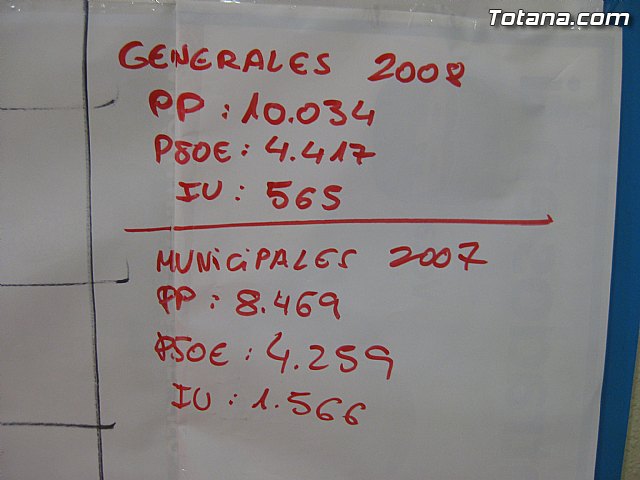 Totana.com
GENERALES 2008
PP : 10.034
PSOE : 4.417
IU : 565
MUNICIPALES 2007
PP : 8.469
PSOE : 4.259
IU : 1.566